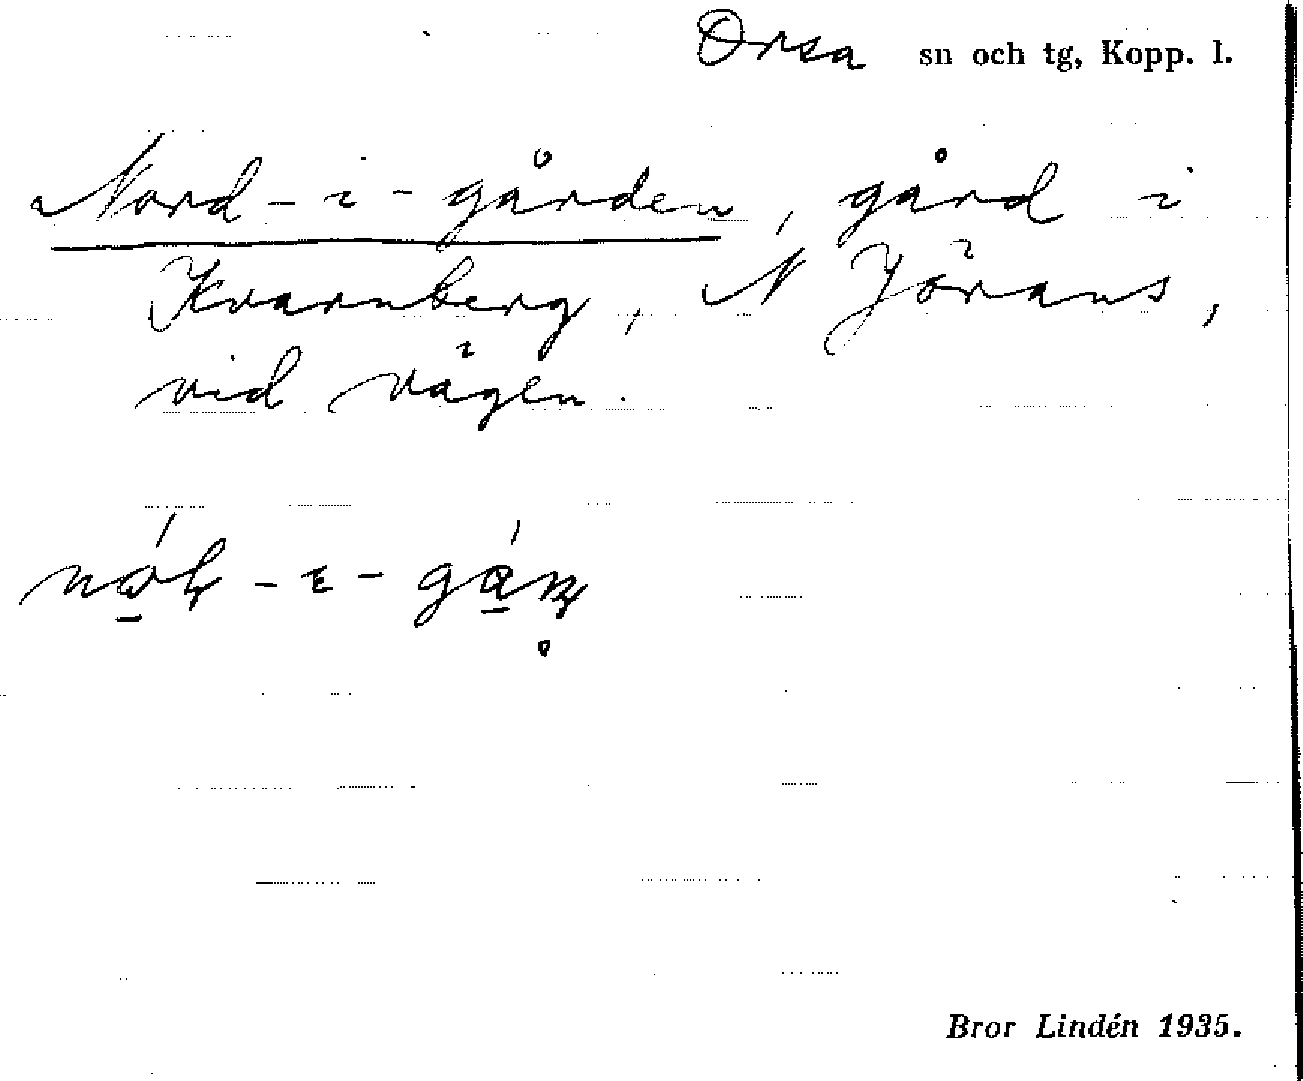 Orsa sn och tg, Kopp. l.
Nord-i-gården, gård i
Kvarnberg, N Jörans,
vid vägen.
Bror Lindén 1935.